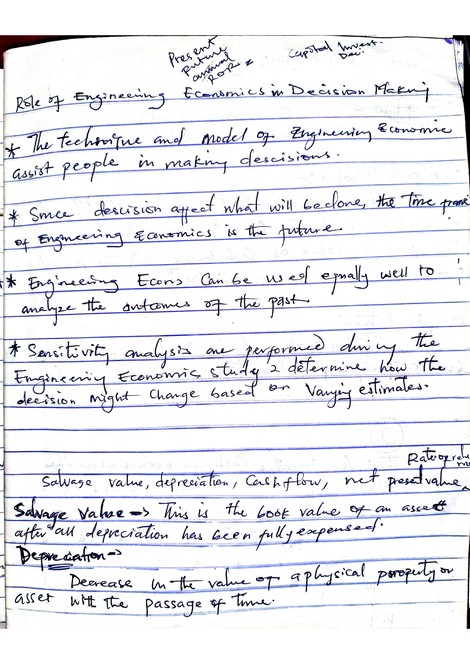 Present
Future
annual
ROR
Capital Invest.
Dec.
Role of Engineering Economics in Decision Making
* The technique and model of Engineering Economic
assist people in making descisions.
* Since descision affect what will be done, the Time frame
of Engineering Economics is the future
* Engineering Econs Can be used equally well to
analyze the outcomes of the past
* Sensitivity analysis are performed during the
Engineering Economics study 2 determine how the
decision might Change based on Varying estimates.
Rate of
Salvage value, depreciation, Cashflow, net present value
Salvage Value => This is the book value of an asset
after all depreciation has been fully expensed.
Depreciation =>
Decrease in the value of a physical property or
asset with the passage of time.